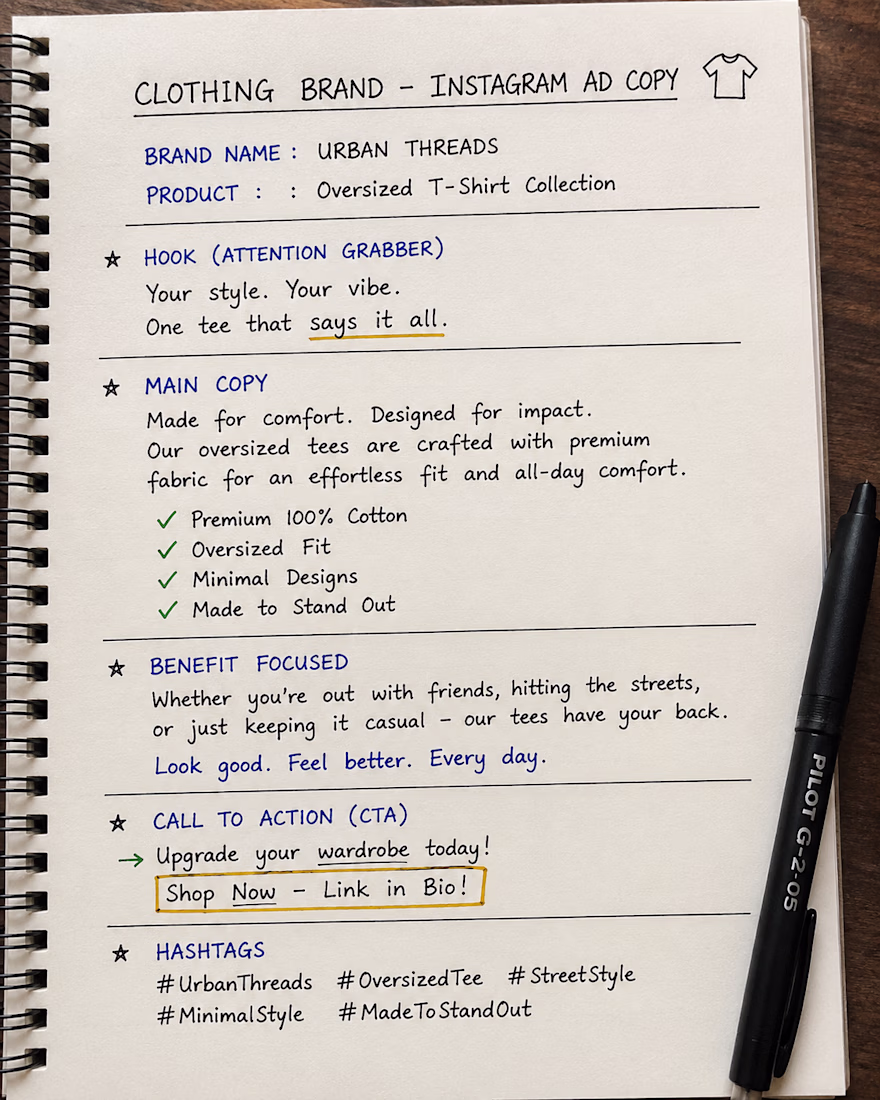 CLOTHING BRAND - INSTAGRAM AD COPY
BRAND NAME : URBAN THREADS
PRODUCT : : Oversized T-Shirt Collection
☆ HOOK (ATTENTION GRABBER)
Your style. Your vibe.
One tee that says it all.
☆ MAIN COPY
Made for comfort. Designed for impact.
Our oversized tees are crafted with premium
fabric for an effortless fit and all-day comfort.
✓ Premium 100% Cotton
✓ Oversized Fit
✓ Minimal Designs
✓ Made to Stand Out
☆ BENEFIT FOCUSED
Whether you're out with friends, hitting the streets,
or just keeping it casual - our tees have your back.
Look good. Feel better. Every day.
☆ CALL TO ACTION (CTA)
→ Upgrade your wardrobe today!
Shop Now - Link in Bio!
☆ HASHTAGS
#UrbanThreads #OversizedTee #StreetStyle
#MinimalStyle #MadeToStandOut
PILOT G-2-05